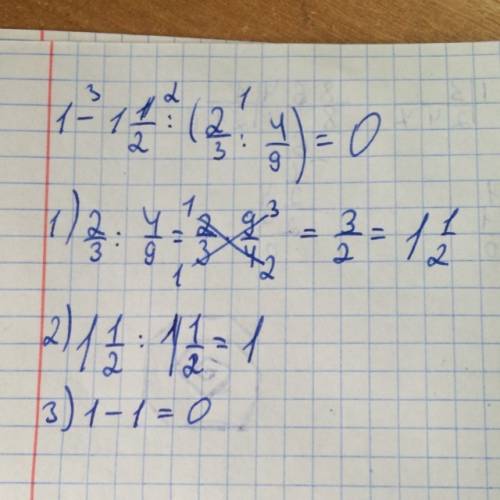 1 - 1 1/2 : (2/3 : 4/9) = 0
1) 2/3 : 4/9 = 2/3 · 9/4 = 3/2 = 1 1/2
2) 1 1/2 : 1 1/2 = 1
3) 1 - 1 = 0